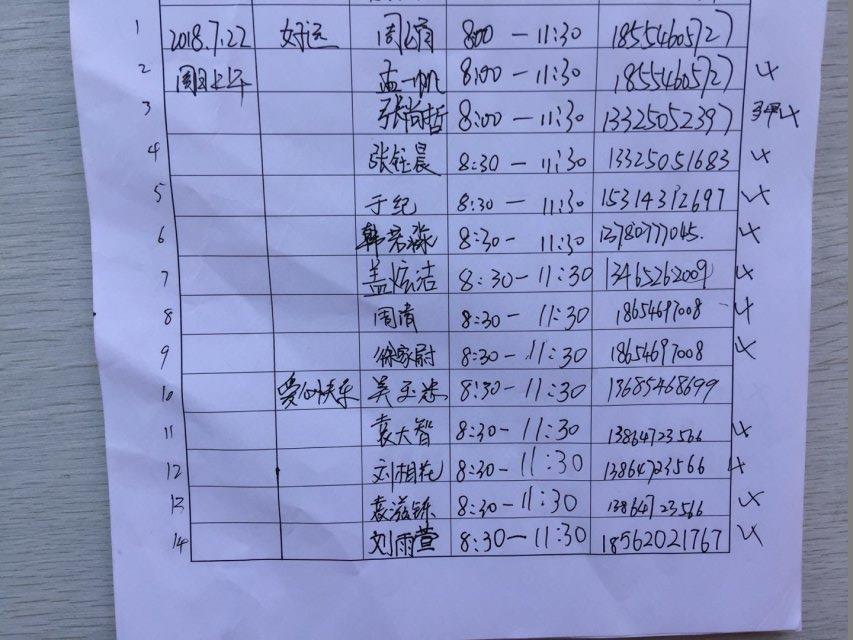 1 2018.7.22 好运 周 8:00 — 11:30 18554605727
2 周日上午 孟一帆 8:00 — 11:30 18554605727
3 张尚哲 8:00 — 11:30 13325052397
4 张钰晨 8:30 — 11:30 13325051683
5 于纪 8:30 — 11:30 15314312697
6 韩 8:30 — 11:30 13780777045.
7 盖炫洁 8:30-11:30 13465262009
8 周清 8:30 — 11:30 18654697008
9 徐家尉 8:30 — 11:30 18654697008
10 爱心快乐 吴玉 8:30-11:30 13685468699
11 袁大智 8:30-11:30 13864723566
12 刘相花 8:30-11:30 13864723566
13 袁滋 8:30-11:30 13864723566
14 刘雨萱 8:30-11:30 18562021767